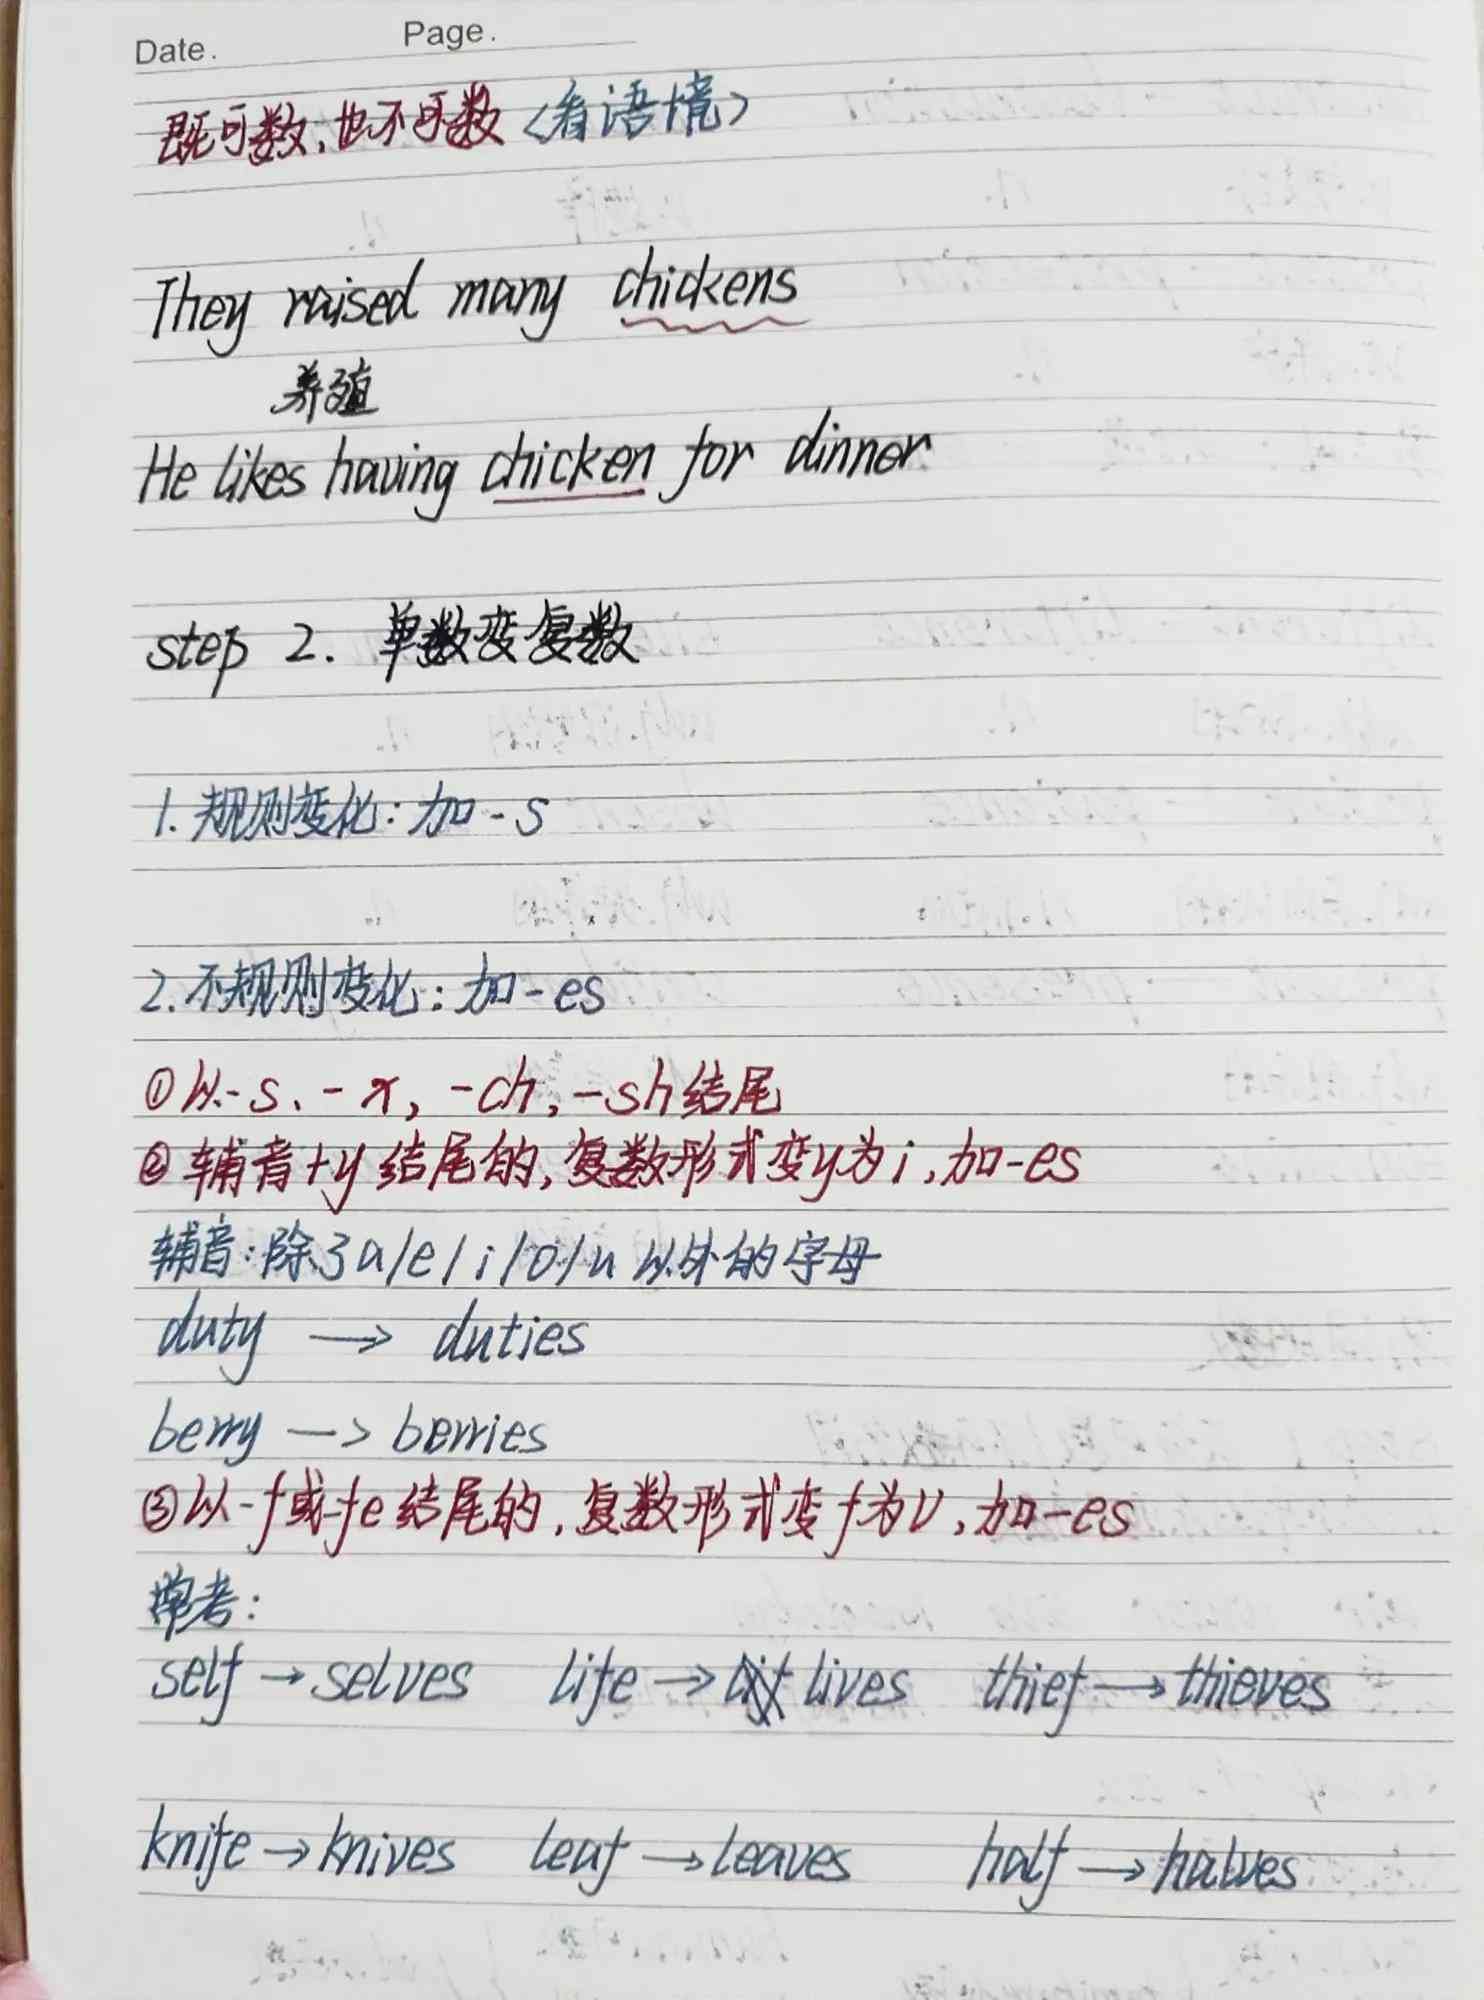 Date.
Page.
既可数,也不可数〈看语境〉
They raised many chickens
养殖
He likes having chicken for dinner
step 2. 单数变复数
1. 规则变化: 加-s
2. 不规则变化: 加-es
①以-s、-x, -ch, -sh结尾
②辅音+y结尾的,复数形式变y为i,加-es
辅音:除了a/e/i/o/u以外的字母
duty → duties
berry —> berries
③以-f或-fe结尾的,复数形式变f为v,加-es
常考:
self → selves life → lives thief → thieves
knife → knives leaf → leaves half → halves